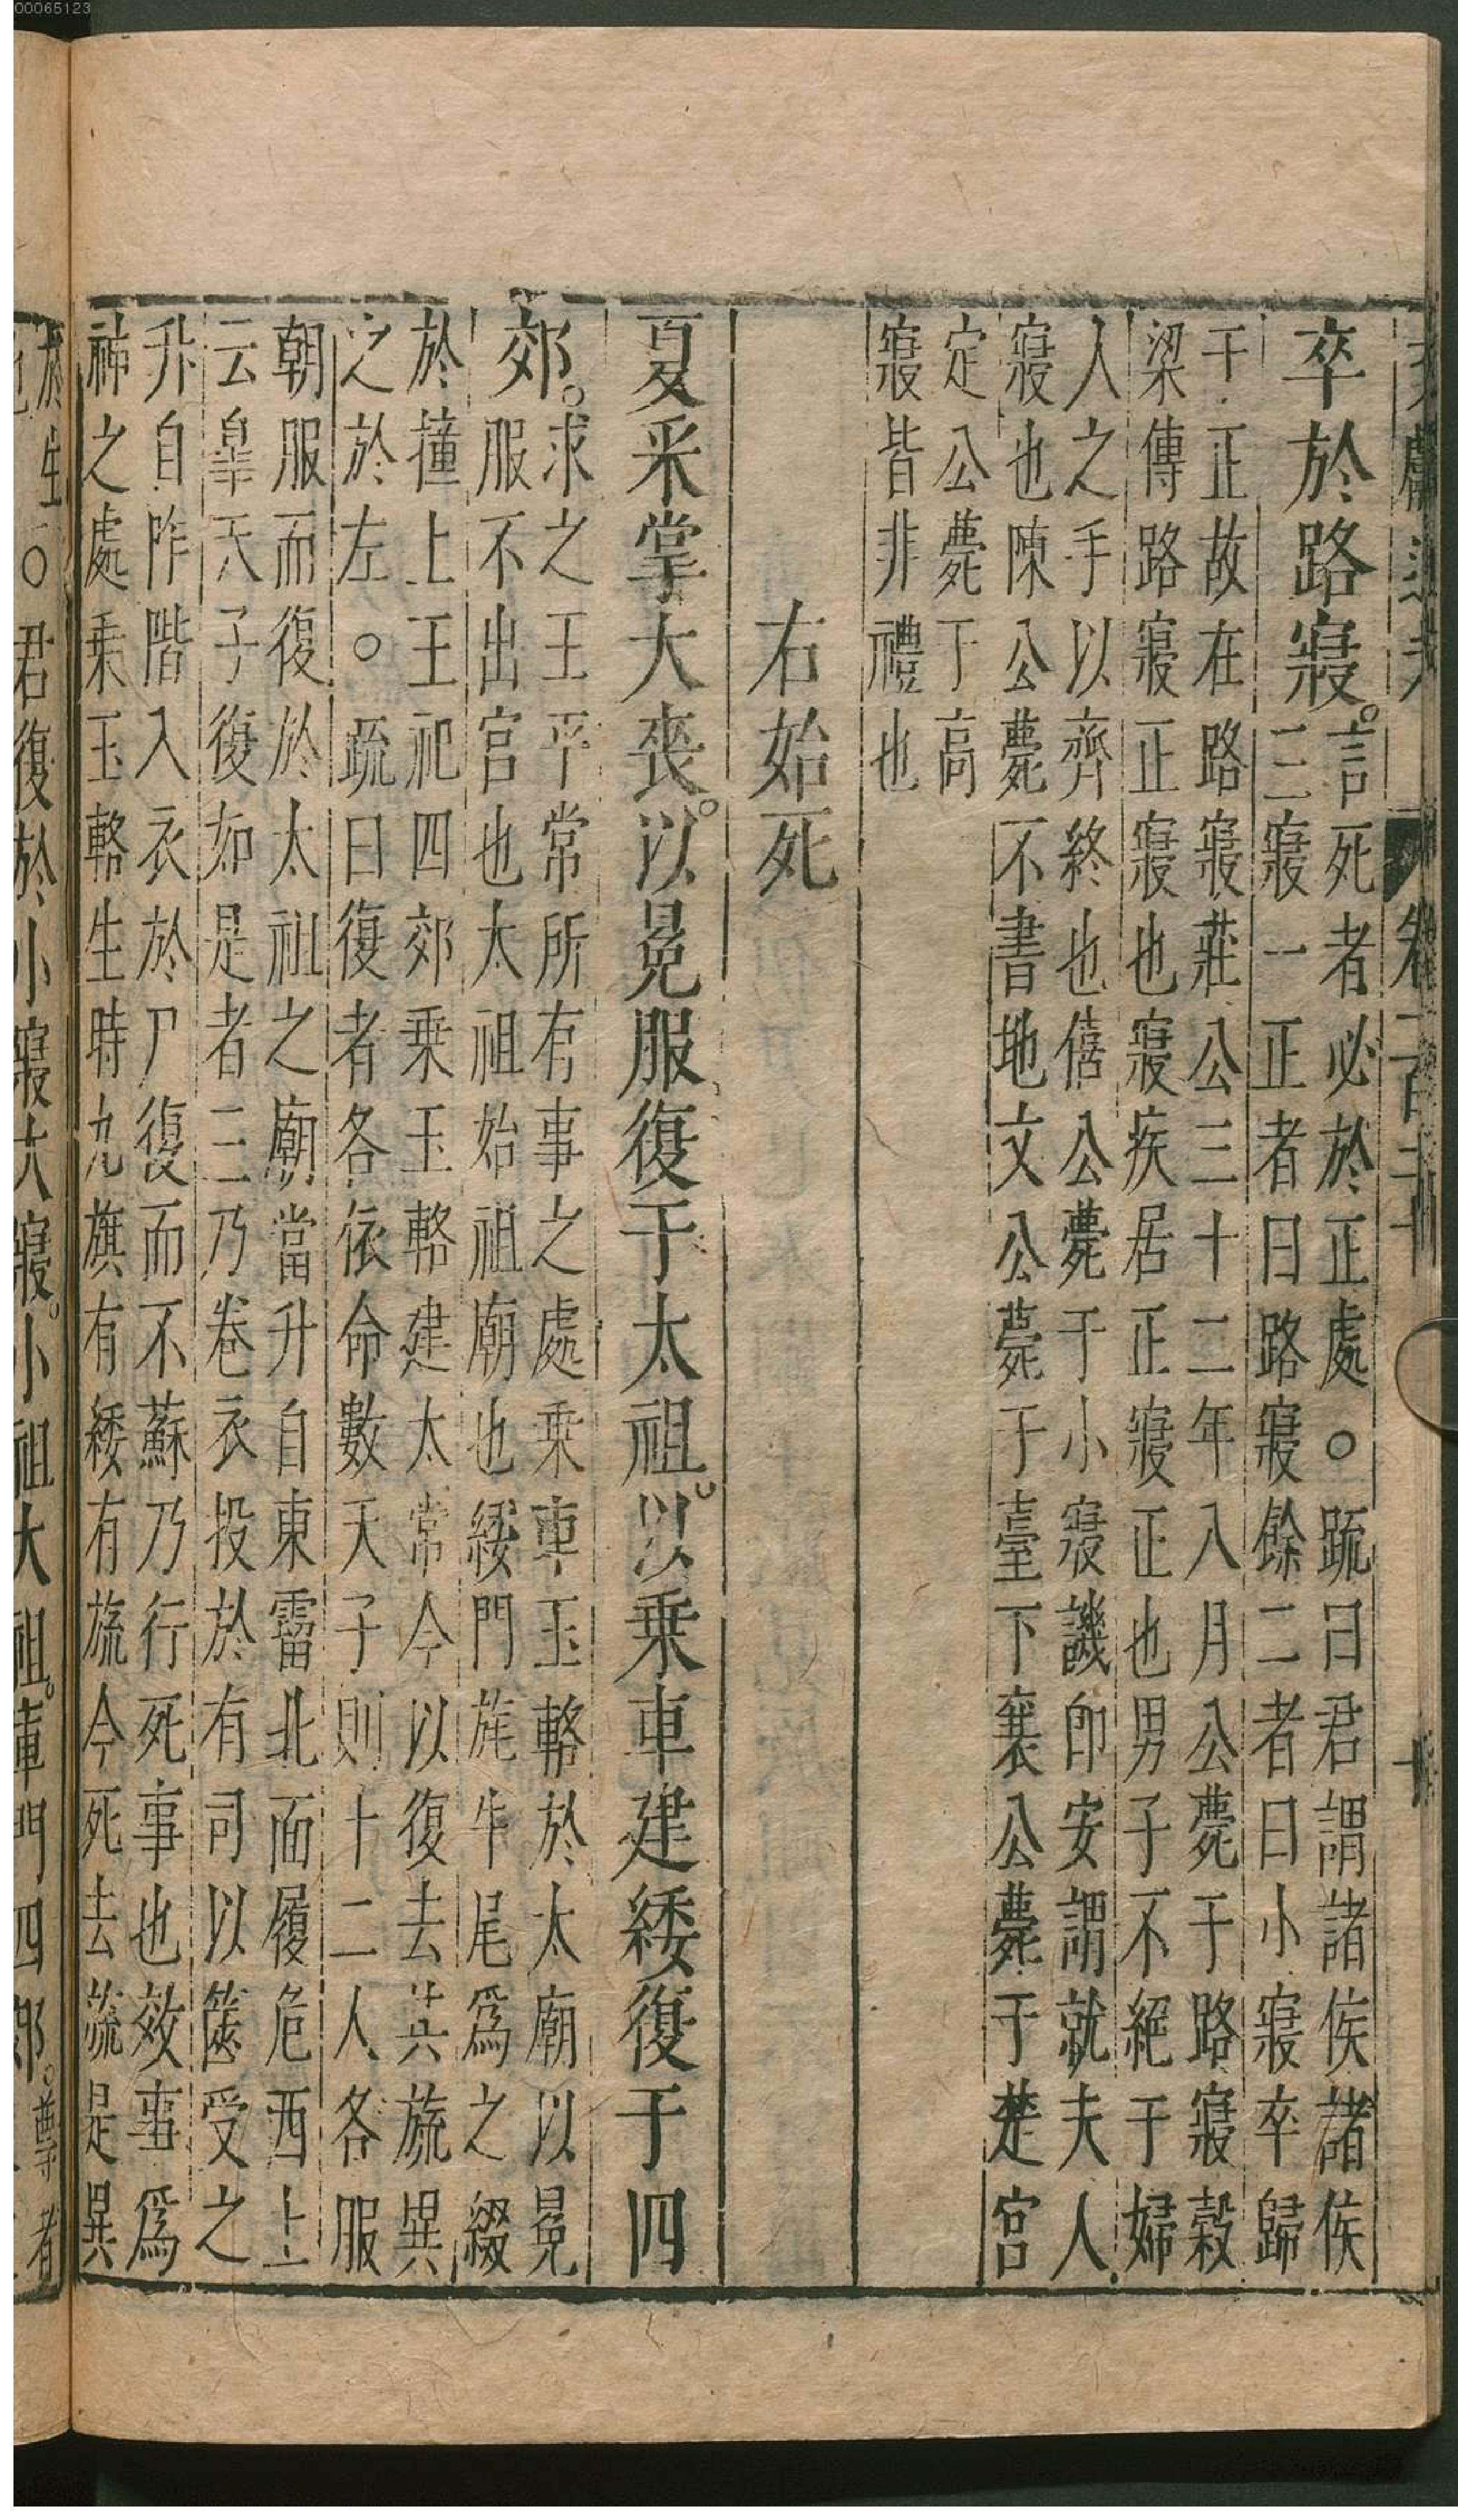 00065123
卒於路寢。言死者必於正處。○䟽曰君謂諸侯諸侯
三寢一正者曰路寢餘二者曰小寢卒歸
于正故在路寢莊公三十二年八月公薨于路寢穀
梁傳路寢正寢也寢疾居正寢正也男子不絕于婦
人之手以齊終也僖公薨于小寢譏即安謂就夫人
寢也陳公薨不書地文公薨于臺下襄公薨于楚宮
定公薨于高
寢皆非禮也
右始死
夏采掌大喪。以冕服復于太祖。以乗車建緌復于四
郊。求之王平常所有事之處乗車玉輅於太廟以冕
服不出宮也太祖始祖廟也緌門旄牛尾爲之綴
於撞上王祀四郊乗玉輅建太常今以復去其旒異
之於左。○䟽曰復者各依命數天子則十二人各服
朝服而復於太祖之廟當升自東霤北面履危西上
云臯天子復如是者三乃卷衣投於有司以篋受之
升自阼階入衣於尸復而不蘇乃行死事也效事爲
神之處乗玉輅生時九旗有緌有旒今死去旒是異
於生○君復於小寢大寢。小祖大祖。庫門四郊。尊者